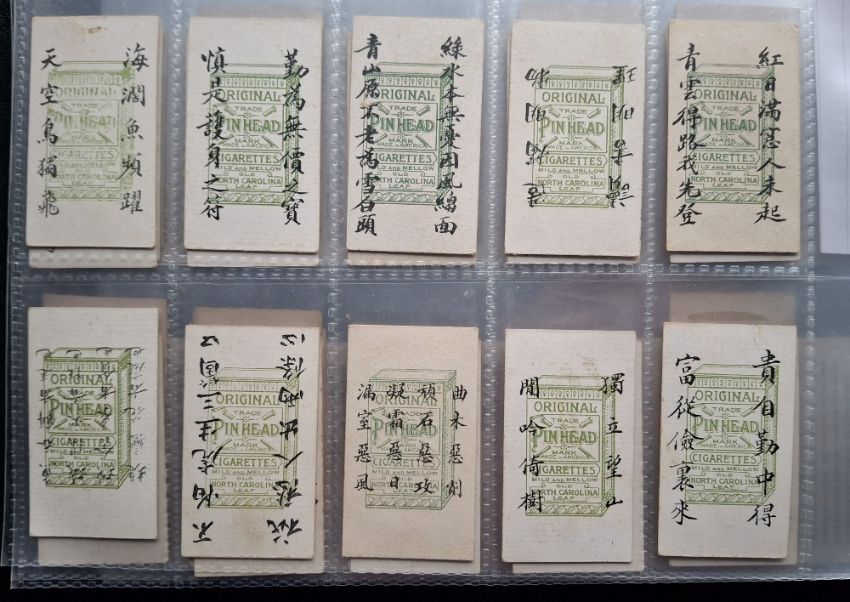 海濶魚頻躍
天空鳥獨飛
ORIGINAL
TRADE
PIN HEAD
MARK
MADE IN AMERICA
CIGARETTES
MILD AND MELLOW
OLD
NORTH CAROLINA
LEAF
勤為無價之寶
慎是護身之符
ORIGINAL
TRADE
PIN HEAD
MARK
MADE IN AMERICA
CIGARETTES
MILD AND MELLOW
OLD
NORTH CAROLINA
LEAF
綠水本無憂因風縐面
青山原不老為雪白頭
ORIGINAL
TRADE
PIN HEAD
MARK
MADE IN AMERICA
CIGARETTES
MILD AND MELLOW
OLD
NORTH CAROLINA
LEAF
ORIGINAL
TRADE
PIN HEAD
MARK
MADE IN AMERICA
CIGARETTES
MILD AND MELLOW
OLD
NORTH CAROLINA
LEAF
紅日滿窓人未起
青雲得路我先登
ORIGINAL
TRADE
PIN HEAD
MARK
MADE IN AMERICA
CIGARETTES
MILD AND MELLOW
OLD
NORTH CAROLINA
LEAF
ORIGINAL
TRADE
PIN HEAD
MARK
MADE IN AMERICA
CIGARETTES
MILD AND MELLOW
OLD
NORTH CAROLINA
LEAF
不怕虎生三箇口
ORIGINAL
TRADE
PIN HEAD
MARK
MADE IN AMERICA
CIGARETTES
MILD AND MELLOW
OLD
NORTH CAROLINA
LEAF
曲木惡削
頑石惡攻
凝霜惡日
漏室惡風
ORIGINAL
TRADE
PIN HEAD
MARK
MADE IN AMERICA
CIGARETTES
MILD AND MELLOW
OLD
NORTH CAROLINA
LEAF
獨立望山
閒吟倚樹
ORIGINAL
TRADE
PIN HEAD
MARK
MADE IN AMERICA
CIGARETTES
MILD AND MELLOW
OLD
NORTH CAROLINA
LEAF
貴自勤中得
富從儉裏來
ORIGINAL
TRADE
PIN HEAD
MARK
MADE IN AMERICA
CIGARETTES
MILD AND MELLOW
OLD
NORTH CAROLINA
LEAF